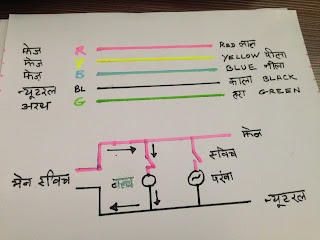 फेज R RED लाल
फेज Y YELLOW पीला
फेज B BLUE नीला
न्यूटरल BL काला BLACK
अरथ G हरा GREEN
फेज
मेन स्विच
स्विच
बल्ब
पंखा
न्यूटरल